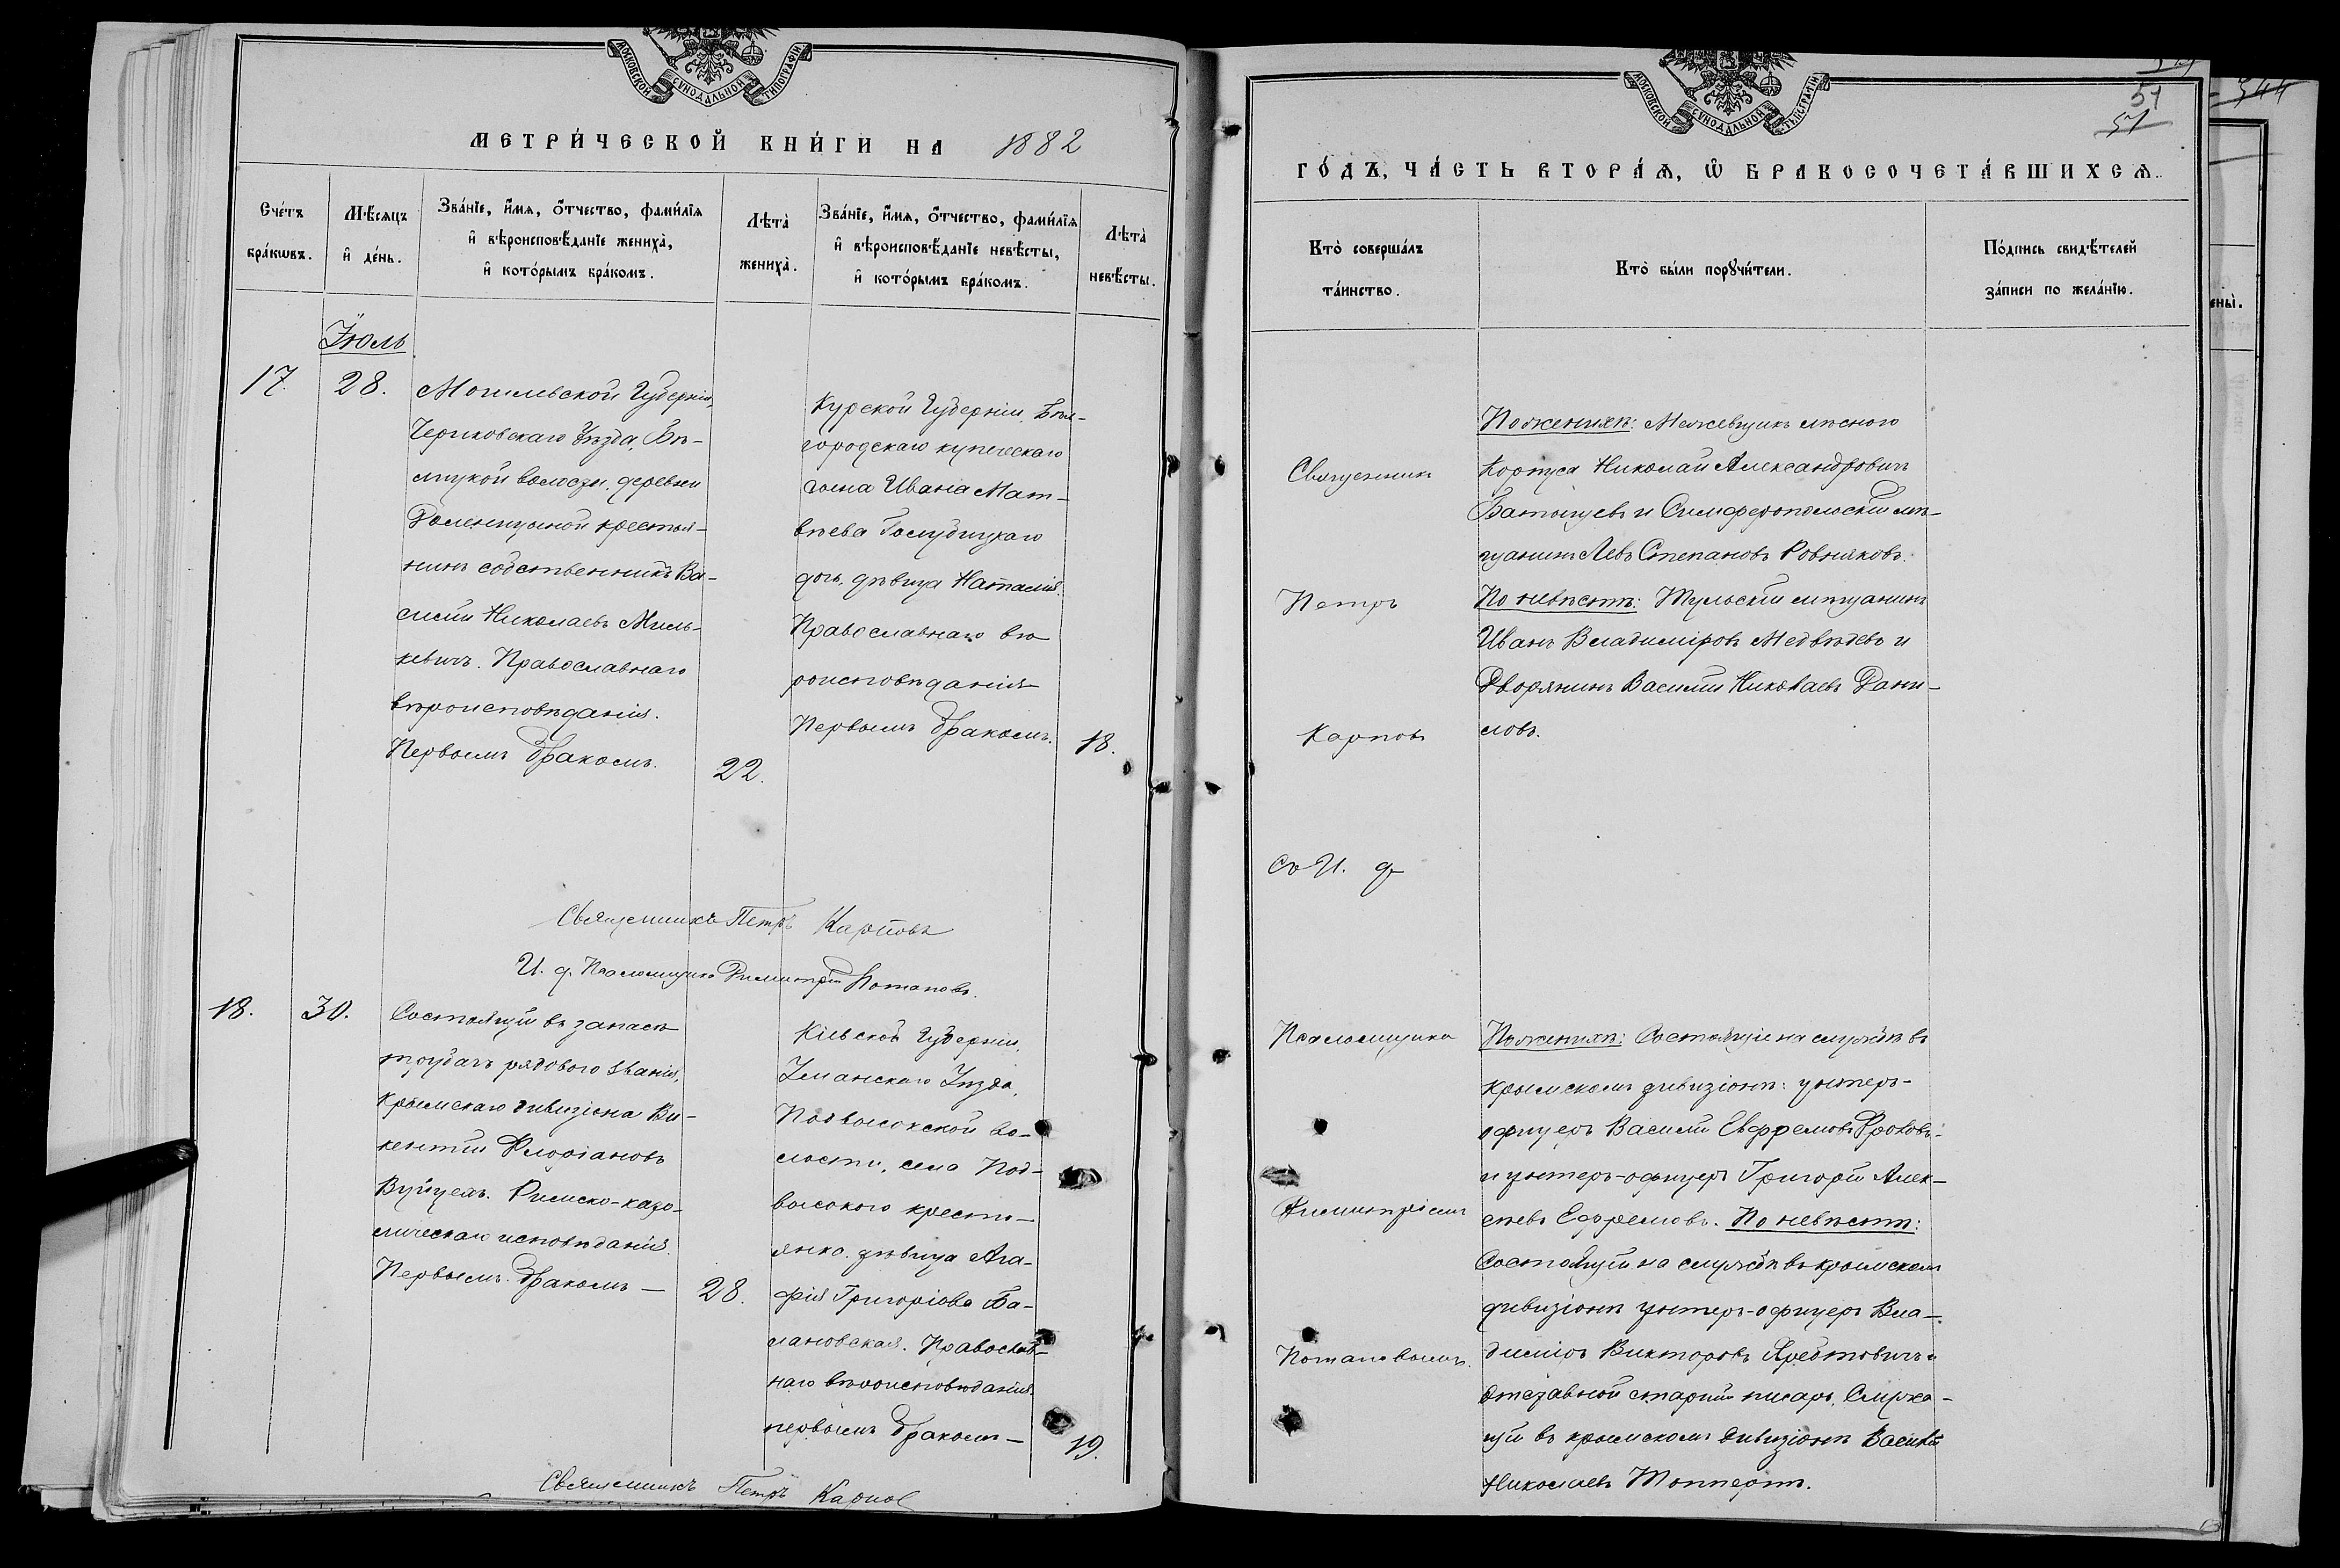 МОСКОВСКОЙ СѴНОДАЛЬНОЙ ТИПОГРАФІИ
МЕТРИ́ЧЕСКОЙ КНИ́ГИ НА 1882
Сче́тъ бра́кѡвъ.
Мѣ́сяцъ и҆ де́нь.
Зва́нїе, и҆́мя, ѻ҆́тчество, фами́лїя
и҆ вѣроисповѣ́данїе жениха̀,
и҆ кото́рымъ бра́комъ.
Лѣта̀ жениха̀.
Зва́нїе, и҆́мя, ѻ҆́тчество, фами́лїя
и҆ вѣроисповѣ́данїе невѣ́сты,
и҆ кото́рымъ бра́комъ.
Лѣта̀ невѣ́сты.
Іюль
17.
28.
Могилевской Губерніи,
Чериковскаго Уѣзда, Бѣ-
лицкой волости, деревни
крестья-
нинъ собственникъ Ва-
силій Николаевъ Миль-
кевичъ. Православнаго
вѣроисповѣданія.
Первымъ бракомъ.
22.
Курской Губерніи, Бѣл-
городскаго купеческаго
сына Ивана Мат-
вѣева Голубицкаго
дочь, дѣвица Наталія.
Православнаго вѣ-
роисповѣданія
Первымъ бракомъ.
18.
Священникъ Петръ Карповъ
И. д. Псаломщика Димитрій Потаповъ.
18.
30.
Состоящій въ запасѣ
трубачъ рядового званія,
Крымскаго дивизіона Ви-
кентій Флоріановъ
Римско-като-
лическаго исповѣданія.
Первымъ бракомъ —
28.
Кіевской Губерніи,
Уманскаго Уѣзда,
Подвысокской во-
лости, села Под-
высокого кресть-
янка, дѣвица Ага-
фія Григоріева Ба-
лановская. Православ-
наго вѣроисповѣданія.
первымъ бракомъ —
19.
Священникъ Петръ Карпов
МОСКОВСКОЙ СѴНОДАЛЬНОЙ ТИПОГРАФІИ
51
51
544
ГО́ДЪ, ЧА́СТЬ ВТОРА́Я, Ѡ҆ БРАКОСОЧЕТА́ВШИХСЯ.
Кто̀ соверша́лъ та́инство.
Кто̀ бы́ли порꙋчи́тели.
По́дпись свидѣ́телей
за́писи по жела́нїю.
Священникъ
Петръ
Карповъ
съ И. д.
Псаломщика
Димитріемъ
Потаповымъ.
По женихѣ: Межевщикъ лѣсного
Корпуса Николай Александровичъ
и Симферопольскій мѣ-
щанинъ Левъ Степановъ Ровняковъ.
По невѣстѣ: Тульскій мѣщанинъ
Иванъ Владиміровъ Медвѣдевъ и
Дворянинъ Василій Николаевъ Дани-
ловъ.
По женихѣ: Состоящіе на службѣ въ
Крымскомъ дивизіонѣ: унтеръ-
офицеръ Василій Евфремовъ Фроловъ
и унтеръ-офицеръ Григорій Алек-
сѣевъ Ефремовъ. По невѣстѣ:
Состоящій на службѣ въ крымскомъ
дивизіонѣ унтеръ-офицеръ Вла-
диміръ Викторовъ и
отставной старшій писарь, Служа-
щій въ крымскомъ дивизіонѣ Василій
Николаевъ Топпертъ.